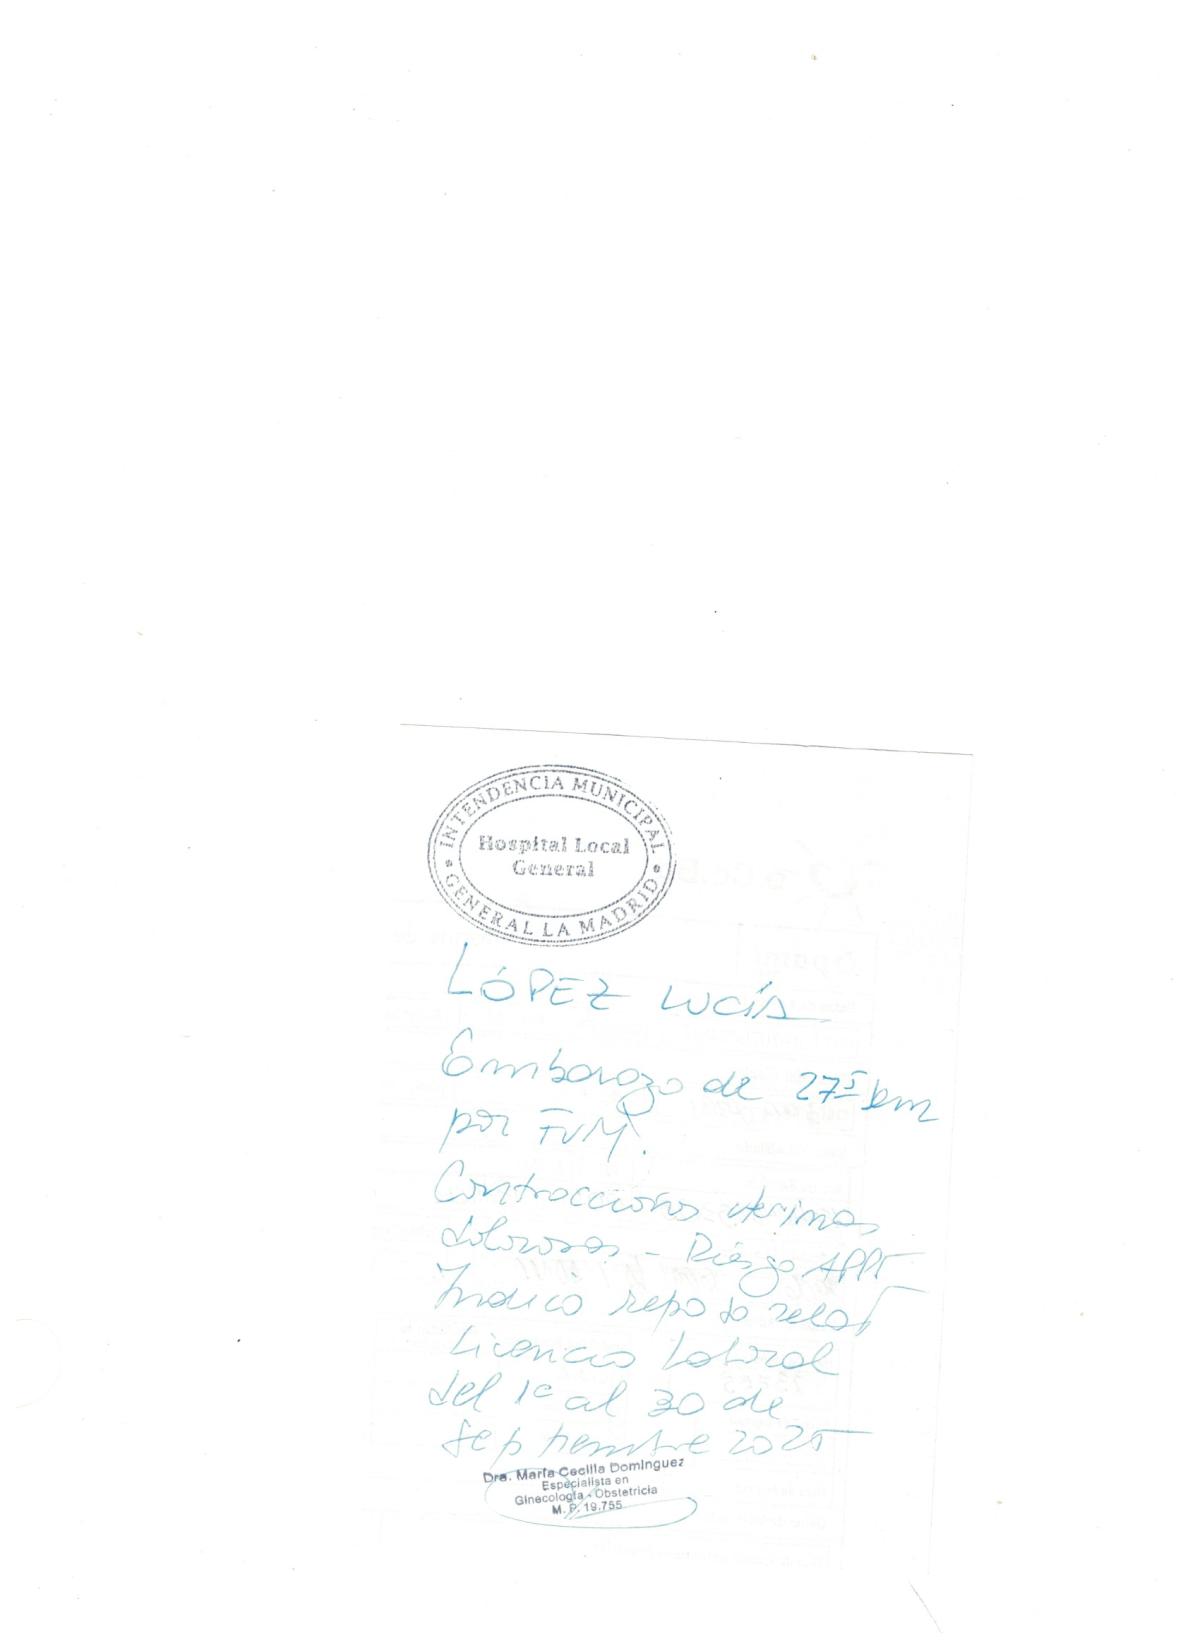 INTENDENCIA MUNICIPAL
Hospital Local
General
GENERAL LA MADRID
LÓPEZ LUCÍA
Embarazo de 27 5 sem
por FUM.
Contracciones uterinas
dolorosas - Riesgo APPT
Indico reposo relat
Licencia Laboral
del 1º al 30 de
septiembre 2025
Dra. María Cecilia Dominguez
Especialista en
Ginecología - Obstetricia
M. P. 19.755